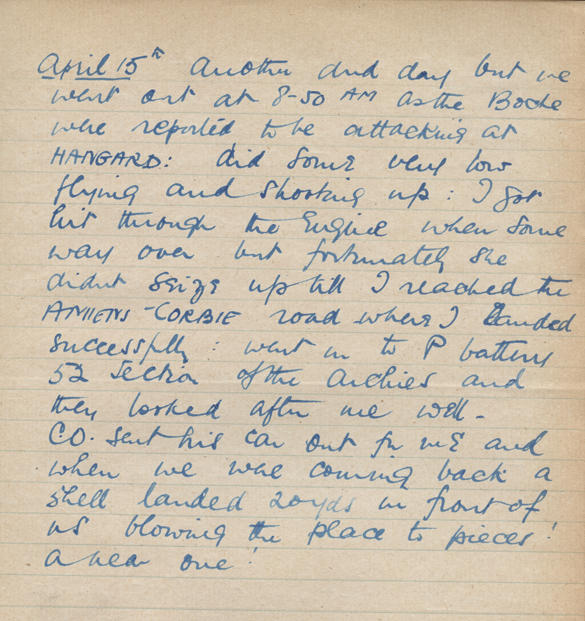 April 15th Another dud day but we
went out at 8-50 AM as the Boche
were reported to be attacking at
HANGARD: did some very low
flying and shooting up: I got
hit through the Engine when some
way over but fortunately she
didnt seize up till I reached the
AMIENS-CORBIE road where I landed
successfully: went in to P battery
52 Section of the Archies and
they looked after me well-
CO. sent his car out for me and
when we were coming back a
shell landed 20yds in front of
us blowing the place to pieces!
a near one!